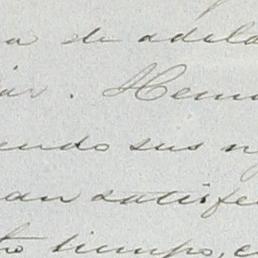 a de adela
iar. Hemo
endo sus n
an satisfe
tro tiempo, e